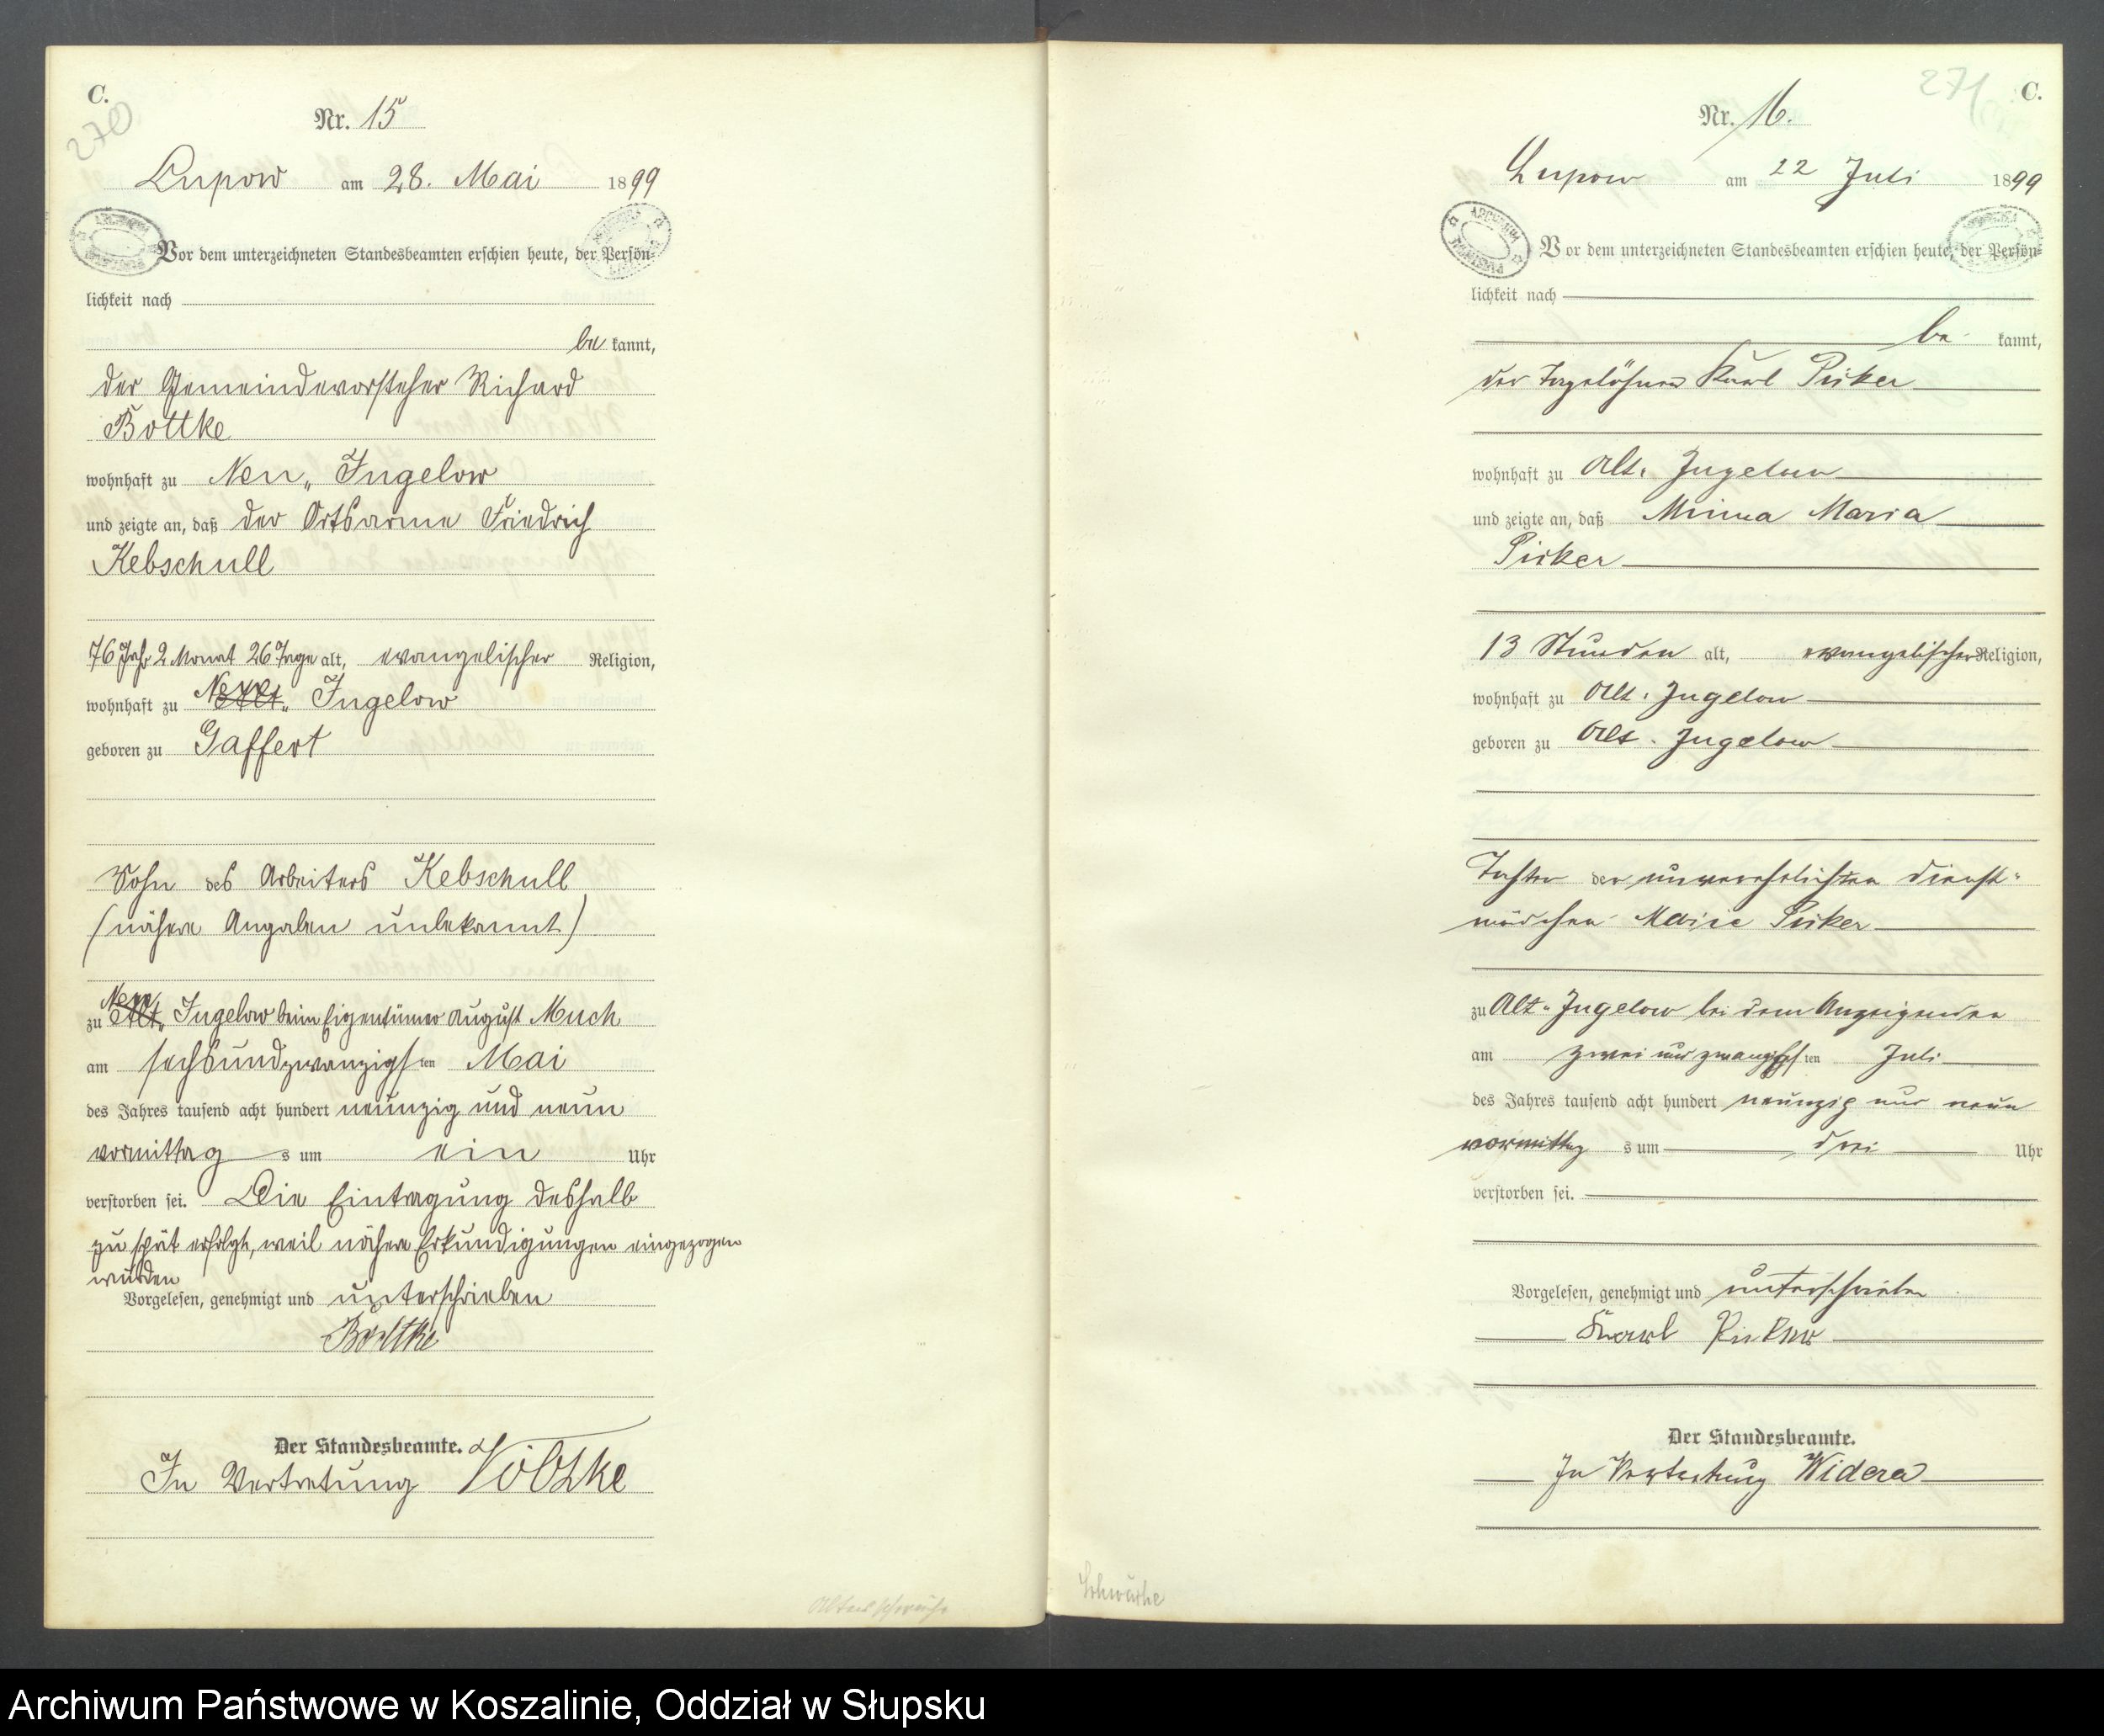 C.
270
Nr. 15
Lupow am 28. Mai 1899
Vor dem unterzeichneten Standesbeamten erschien heute, der Persön-
lichkeit nach
be kannt,
der Gemeindevorsteher Richard
Bottke
wohnhaft zu Neu- Jugelow
und zeigte an, daß der Ortsarme Friedrich
Kebschull
76 Jahr 2 Monat 26 Tage alt, evangelischer Religion,
wohnhaft zu Neu Alt- Jugelow
geboren zu Gaffert
Sohn des Arbeiters Kebschull
(nähere Angaben unbekannt)
Neu
zu Alt- Jugelow beim Eigentümer August Much
am sechsundzwanzigsten Mai
des Jahres tausend acht hundert neunzig und neun
vormittag s um ein Uhr
verstorben sei. Die Eintragung deshalb
zu spät erfolgt, weil nähere Erkundigungen eingezogen
wurden
Vorgelesen, genehmigt und unterschrieben
Bottke
Der Standesbeamte.
In Vertretung
Altersschwäche
271
C.
Nr. 16.
Lupow am 22 Juli 1899
Vor dem unterzeichneten Standesbeamten erschien heute, der Persön-
lichkeit nach
be kannt,
der Tagelöhner Karl Pirker
wohnhaft zu Alt- Jugelow
und zeigte an, daß Minna Maria
Pirker
13 Stunden alt, evangelischer Religion,
wohnhaft zu Alt- Jugelow
geboren zu Alt- Jugelow
Tochter der unverehelichten Dienst-
mädchen Marie Pirker
zu Alt- Jugelow bei dem Anzeigenden
am zwei und zwanzigsten Juli
des Jahres tausend acht hundert neunzig und neun
vormittag s um drei Uhr
verstorben sei.
Vorgelesen, genehmigt und unterschrieben
Karl Pirker
Der Standesbeamte.
In Vertretung Widera
Schwäche
Archiwum Państwowe w Koszalinie, Oddział w Słupsku